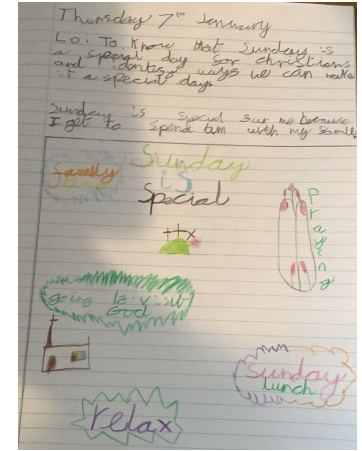 Thursday 7th January
LO: To Know that Sunday is
a special day for christians
and identify ways we can make
it a special day.
Sunday is special for me because
I get to spend tim with my famile
Sunday
is
Special
family
time
Praying
going to visit
God
Sunday
lunch
relax